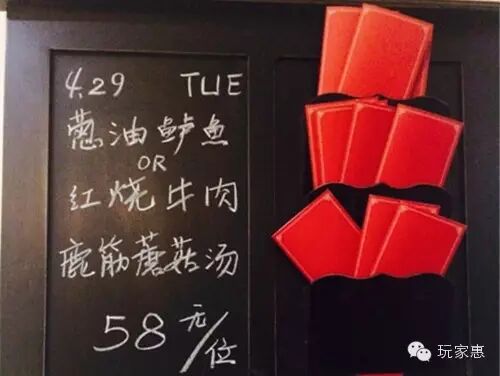 4.29 TUE
葱油鲈鱼
OR
红烧牛肉
鹿筋蘑菇汤
58元/位
玩家惠